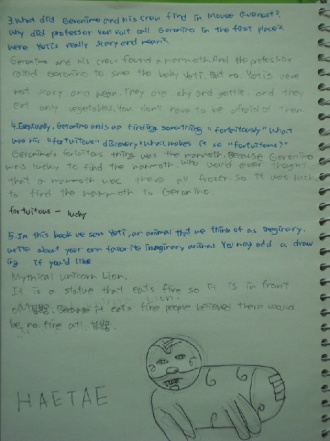 3. What did Geronimo and his crew find in Mouse Everest?
Why did professor Von Volt call Geronimo in the first place?
were Yetis really scary and mean?
Geronimo and his crew found a mammoth. And the professor
called Geronimo to save the baby Yeti. But no. Yetis are
not scary or mean. They are shy and gentle, and they
Eat only vegetables. You don't have to be afraid of them
4. Eventually, Geronimo ends up finding something "fortuitously" What
was his "fortuitous" discovery? What makes it so "fortuitous"?
Geronimo's fortuitous thing was the mammoth. Because Geronimo
was lucky to find the mammoth who would ever thought
that a mammoth was there all frozen. So it was luck
to find the mammoth to Geronimo.
fortuitous - lucky
5. In this book we saw Yeti, or animal that we think of as Imaginary.
write about your own favorite imaginary animal. You may add a draw
ing if you'd like
Mythical unicorn Lion.
It is a statue that eats fire so it is in front
of Because it eats fire people believed there would
be no fire at
HAETAE